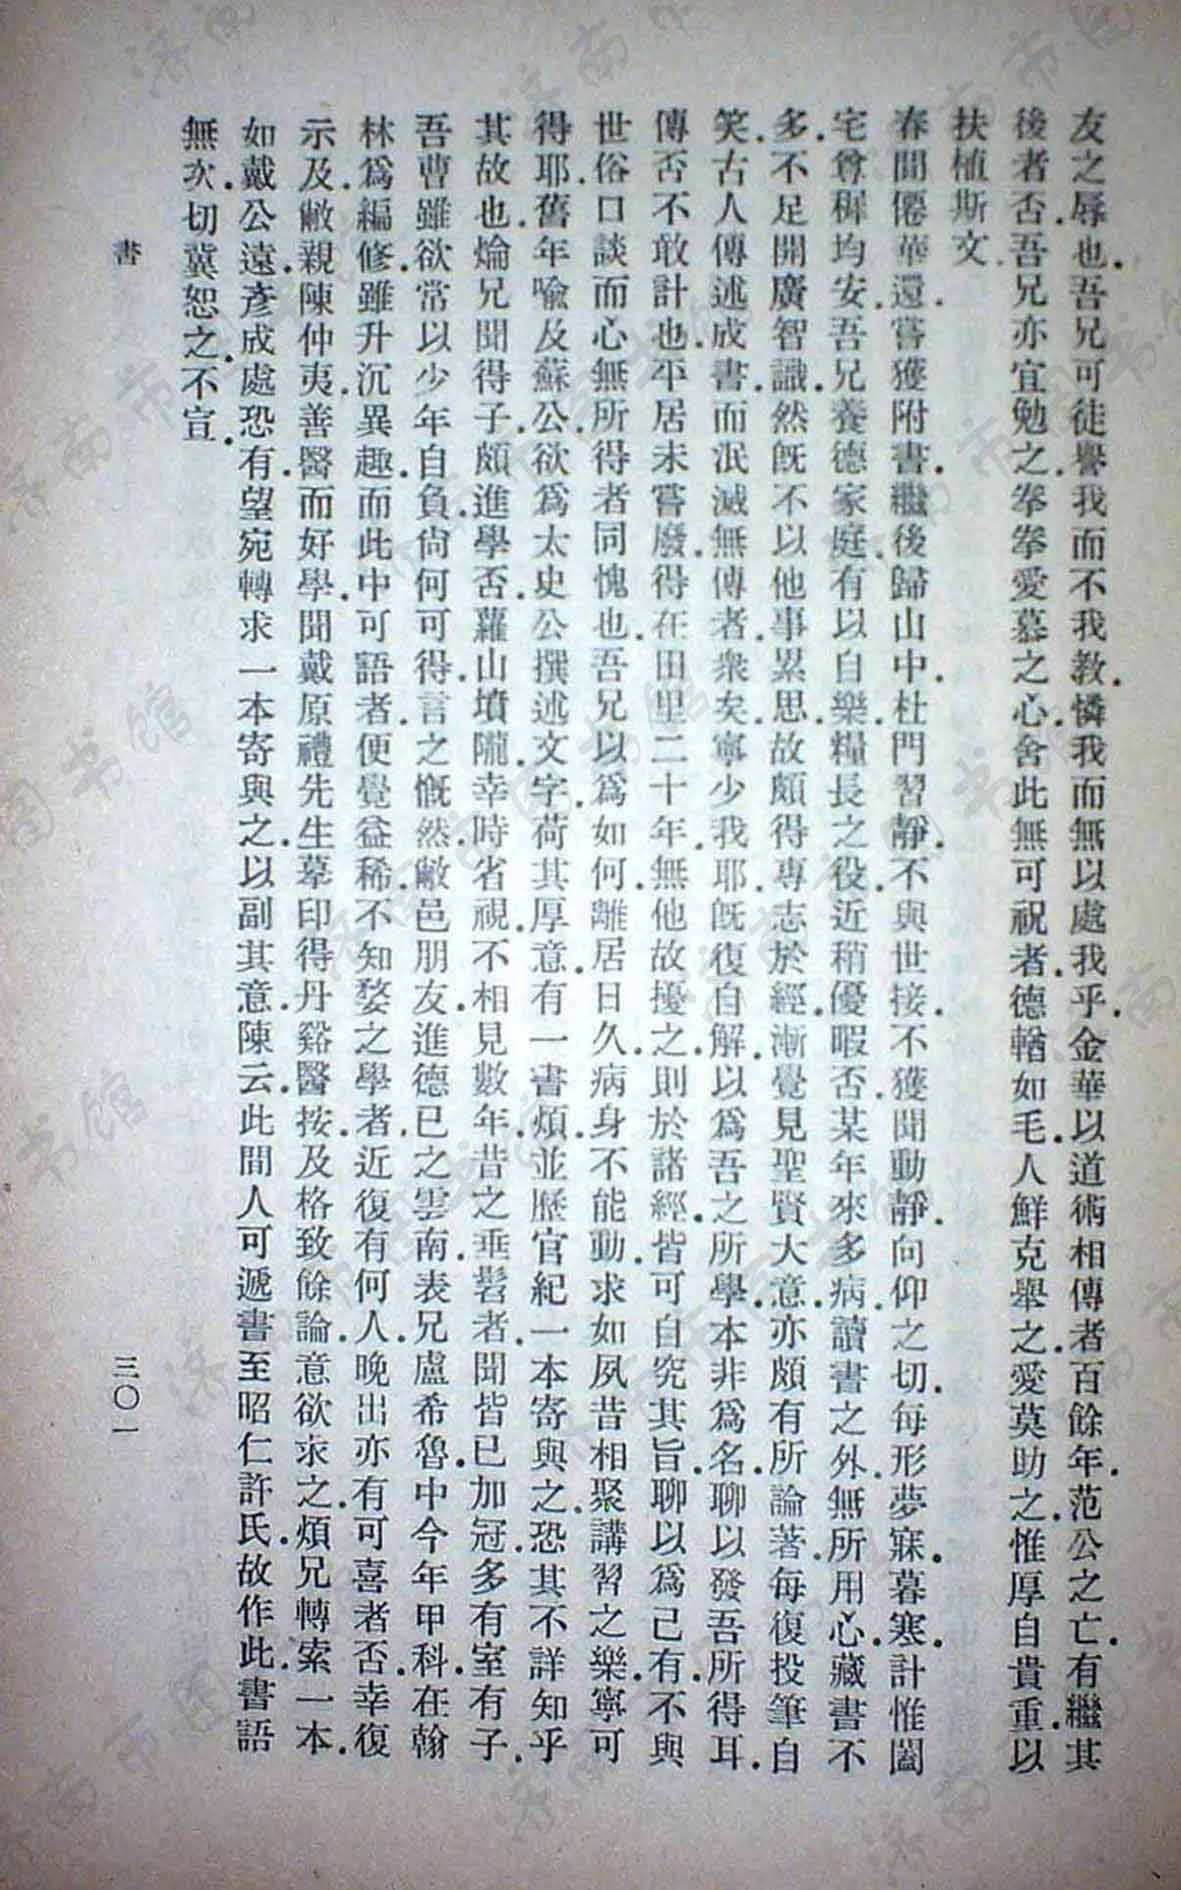 友之辱也.吾兄可徒譽我而不我教.憐我而無以處我乎.金華以道術相傳者百餘年.范公之亡.有繼其
後者否.吾兄亦宜勉之.拳拳愛慕之心.舍此無可祝者.德輶如毛.人鮮克舉之.愛莫助之.惟厚自貴重.以
扶植斯文.
春間僊華還.嘗獲附書.繼後歸山中.杜門習靜.不與世接.不獲聞動靜.向仰之切.每形夢寐.暮寒.計惟闔
宅尊穉均安.吾兄養德家庭.有以自樂.糧長之役.近稍優暇否.某年來多病.讀書之外.無所用心.藏書不
多.不足開廣智識.然既不以他事累思.故頗得專志於經.漸覺見聖賢大意.亦頗有所論著.每復投筆自
笑.古人傳述成書.而泯滅無傳者.衆矣.寧少我耶.既復自解.以爲吾之所學.本非爲名.聊以發吾所得耳.
傳否不敢計也.平居未嘗廢.得在田里二十年.無他故擾之.則於諸經.皆可自究其旨.聊以爲己有.不與
世俗口談而心無所得者同愧也.吾兄以爲如何.離居日久.病身不能動.求如夙昔相聚講習之樂.寧可
得耶.舊年喻及蘇公.欲爲太史公撰述文字.荷其厚意.有一書.煩並歷官紀一本寄與之.恐其不詳知乎
其故也.煸兄聞得子.頗進學否.蘿山墳隴.幸時省視.不相見數年.昔之垂髫者.聞皆已加冠.多有室有子.
吾曹雖欲常以少年自負.尙何可得.言之慨然.敝邑朋友.進德已之雲南.表兄盧希魯.中今年甲科.在翰
林爲編修.雖升沉異趣.而此中可語者.便覺益稀.不知婺之學者.近復有何人.晚出亦有可喜者否.幸復
示及.敝親陳仲夷.善醫而好學.聞戴原禮先生摹印得丹谿醫按.及格致餘論.意欲求之.煩兄轉索一本.
如戴公遠.彥成處恐有.望宛轉求一本寄與之.以副其意.陳云.此間人可遞書至昭仁許氏.故作此.書語
無次.切冀恕之.不宣.
書
三〇一